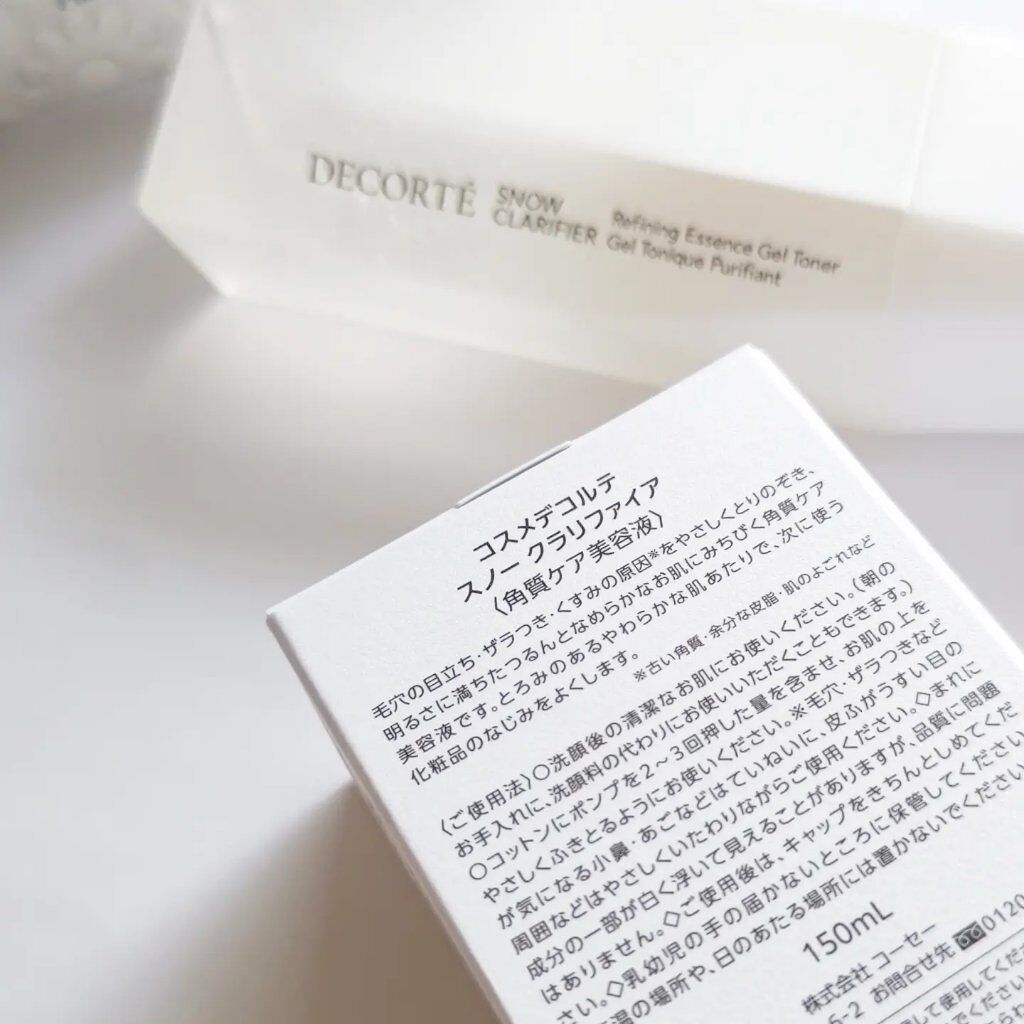 DECORTÉ
SNOW
CLARIFIER
Refining Essence Gel Toner
Gel Tonique Purifiant
コスメデコルテ
スノー クラリファイア
〈角質ケア美容液〉
毛穴の目立ち・ザラつき・くすみの原因※をやさしくとりのぞき、
明るさに満ちたつるんとなめらかなお肌にみちびく角質ケア
美容液です。とろみのあるやわらかな肌あたりで、次に使う
化粧品のなじみをよくします。
※古い角質・余分な皮脂・肌のよごれなど
〈ご使用法〉○洗顔後の清潔なお肌にお使いください。（朝の
お手入れに、洗顔料の代わりにお使いいただくこともできます。）
○コットンにポンプを2～3回押した量を含ませ、お肌の上を
やさしくふきとるようにお使いください。※毛穴・ザラつきなど
が気になる小鼻・あごなどはていねいに、皮ふがうすい目の
周囲などはやさしくいたわりながらご使用ください。◇まれに
成分の一部が白く浮いて見えることがありますが、品質に問題
はありません。◇ご使用後は、キャップをきちんとしめてくだ
さい。◇乳幼児の手の届かないところに保管してください
温の場所や、日のあたる場所には置かないでください
150mL
株式会社 コーセー
6-2 お問合せ先 0120
して使用してくだ